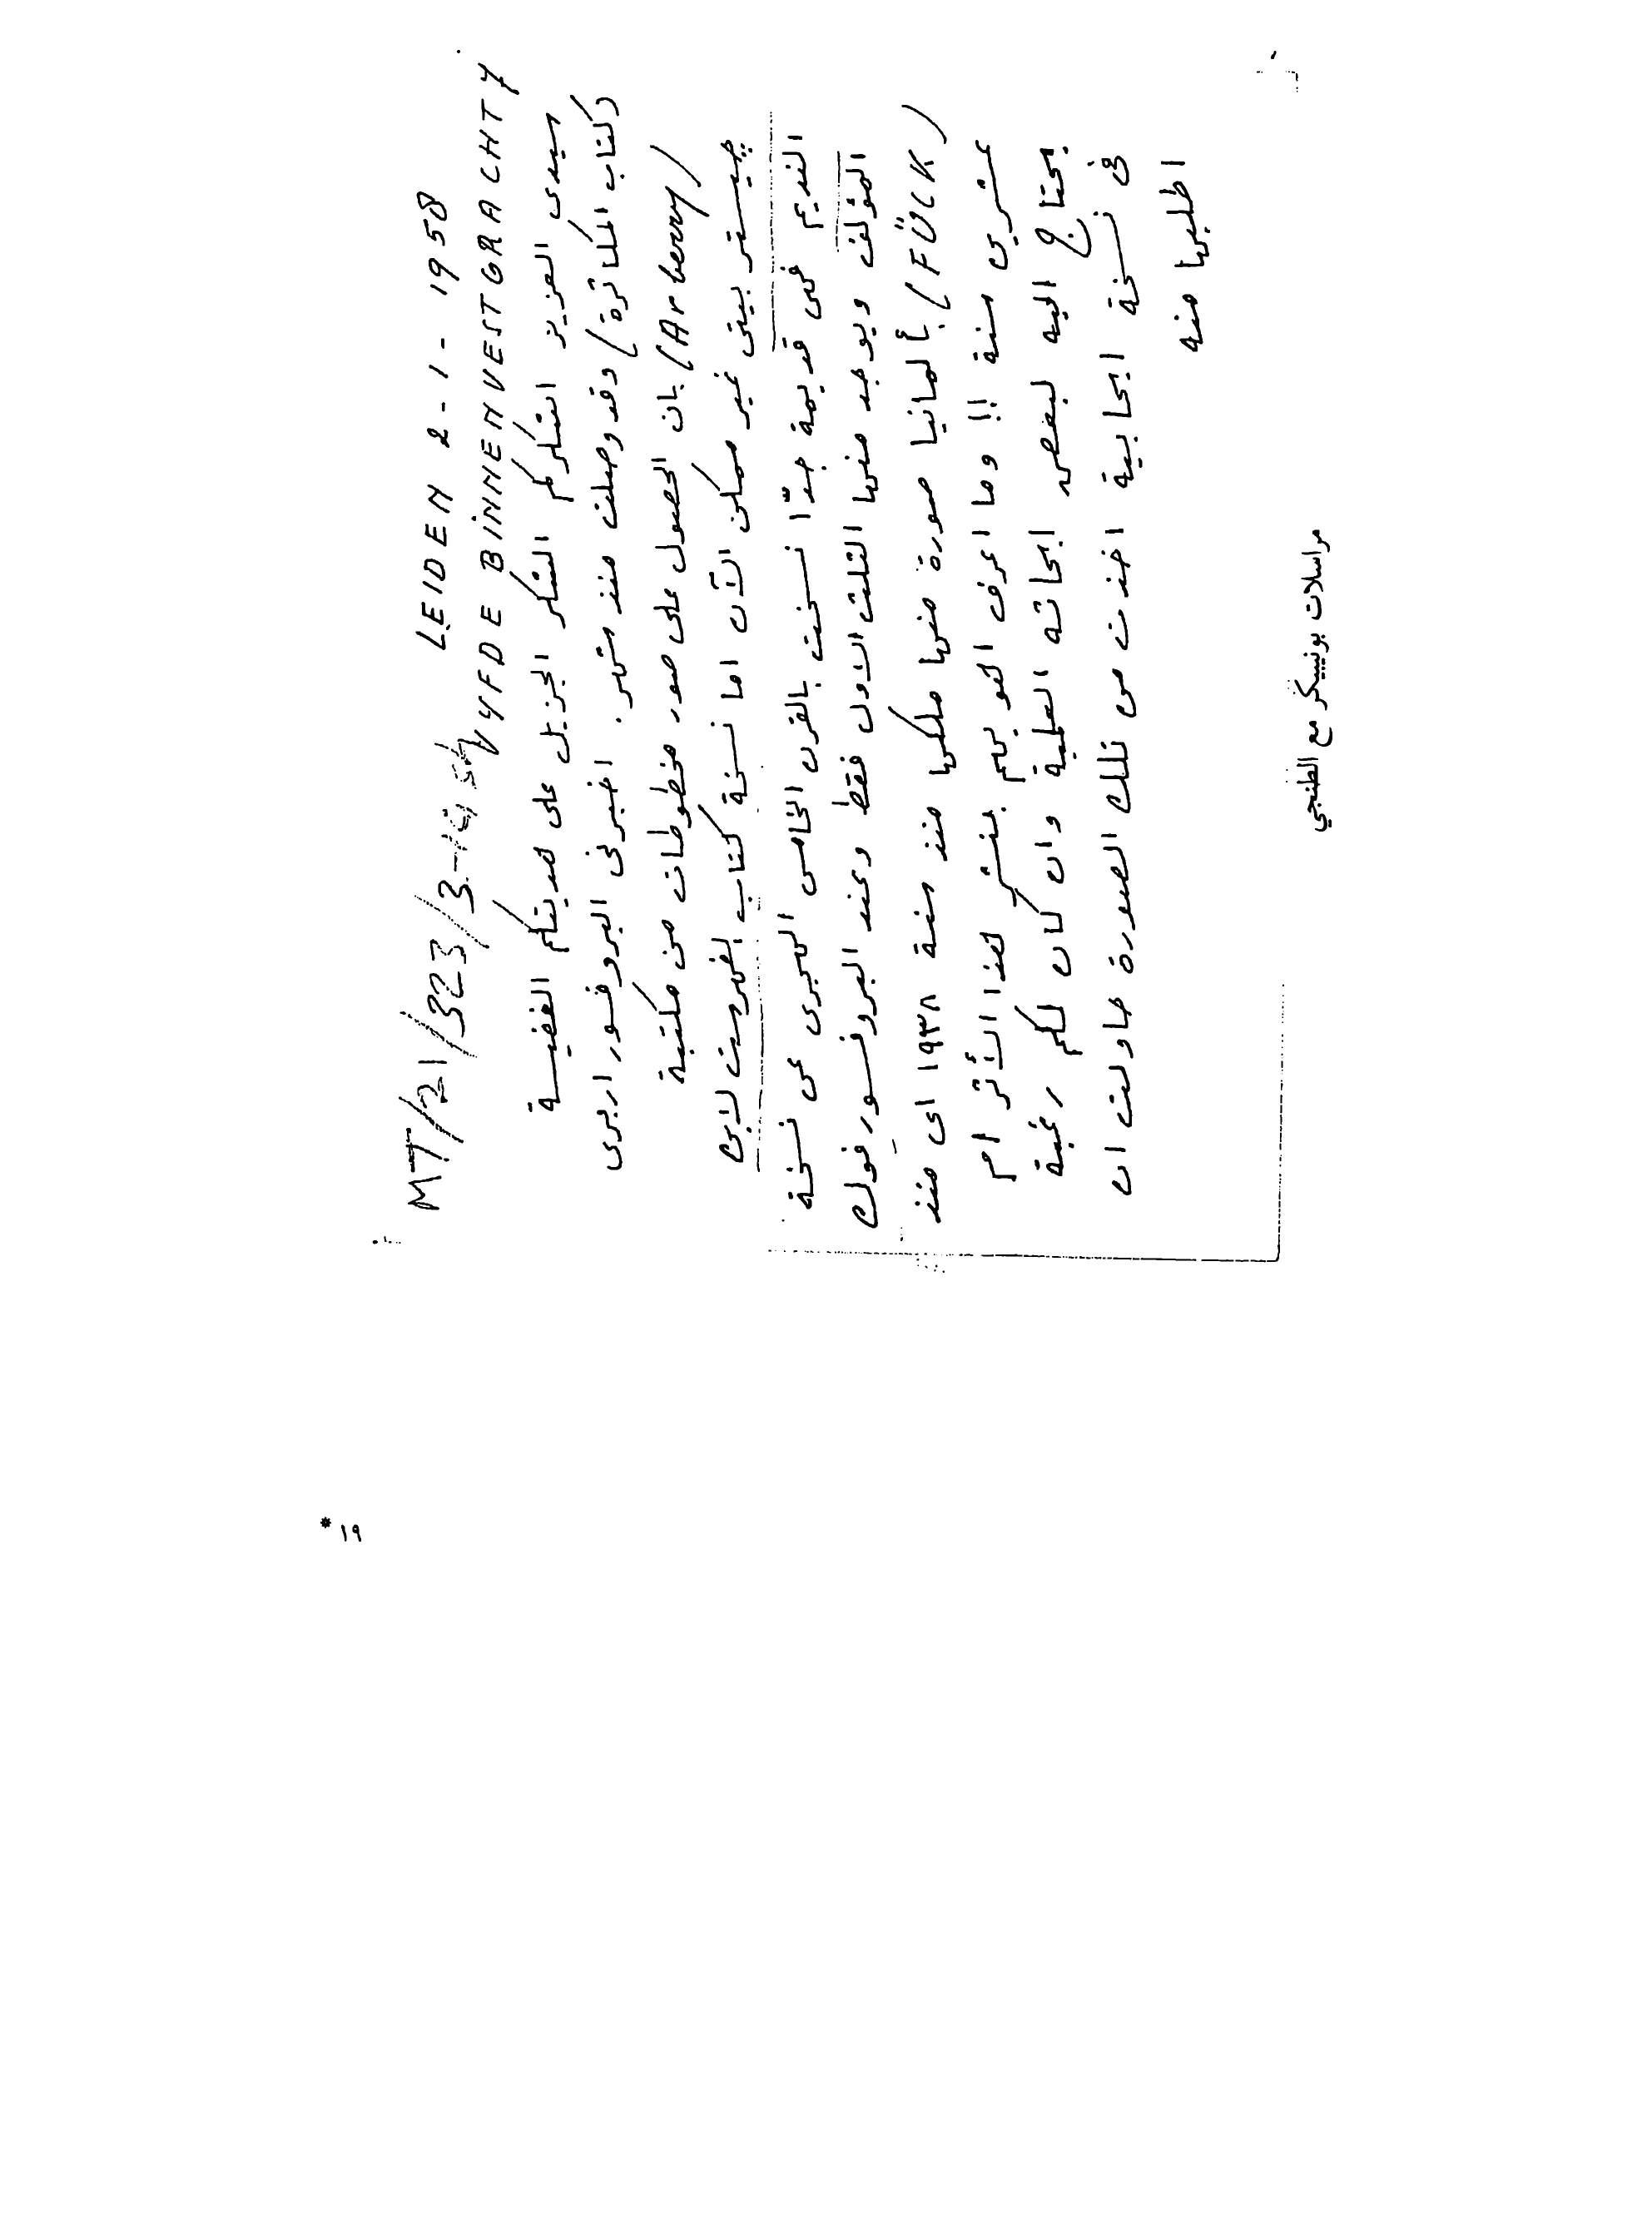 LEIDEN 2-1-1958
MT/21/323/3
VYFDE BINNENVESTGRACHT 7
سيدى العزيز اشكركم الشكر الجزيل على هديتكم النفيسة
(كتاب المكاثرة) وقد وصلت منذ شهر. اخبرنى البروفسور اربرى
(Arberry) بان الحصول على صور مخطوطات من مكتبة
چيستر بيتى غير ممكن الآن اما نسخة كتاب الفهرست لابن
النديم فهى قديمة جدّا نسخت بالقرن الخامس الهجرى عن نسخة
المؤلف ويوجد منها الثلث الاول فقط وعند البروفسور فوك
(FÜCK) بألمانيا صورة منها ملكها منذ سنة ١٩٣٨ اى منذ
عشرين سنة !! وما اعرف اهو يهم بنشر هذا الأثر ام
يحتاج اليه لبعض ابحاثه العلمية وان كان لكم رغبة
فى نسخة ايجابية اخذت من تلك الصورة حاولت ان
اطلبها منه
مراسلات بونيبكر مع الطنجي
١٩*